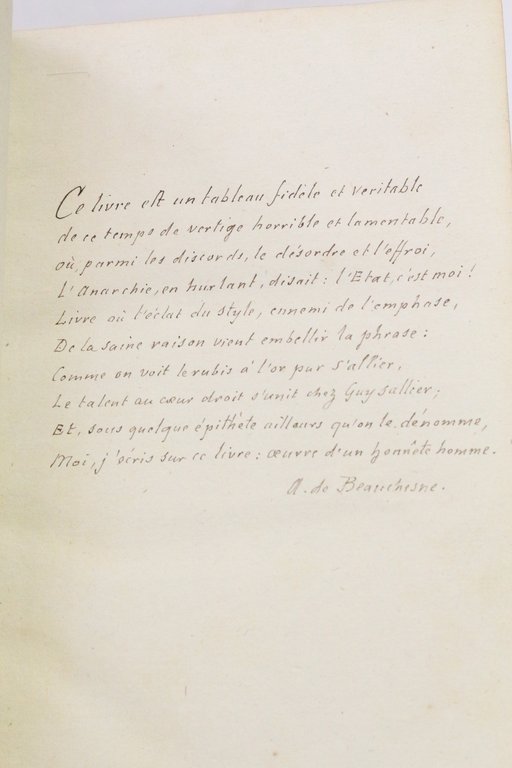 Ce livre est un tableau fidèle et veritable
de ce temps de vertige horrible et lamentable,
où, parmi les discords, le désordre et l'effroi,
L'Anarchie, en hurlant, disait : l'Etat, c'est moi !
Livre où l'éclat du style, ennemi de l'emphase,
De la saine raison vient embellir la phrase :
Comme on voit le rubis à l'or pur s'allier,
Le talent au cœur droit s'unit chez Guy sallier ;
Et, sous quelque épithète ailleurs qu'on le dénomme,
Moi, j'écris sur ce livre : œuvre d'un honnête homme.
A. de Beauchesne.